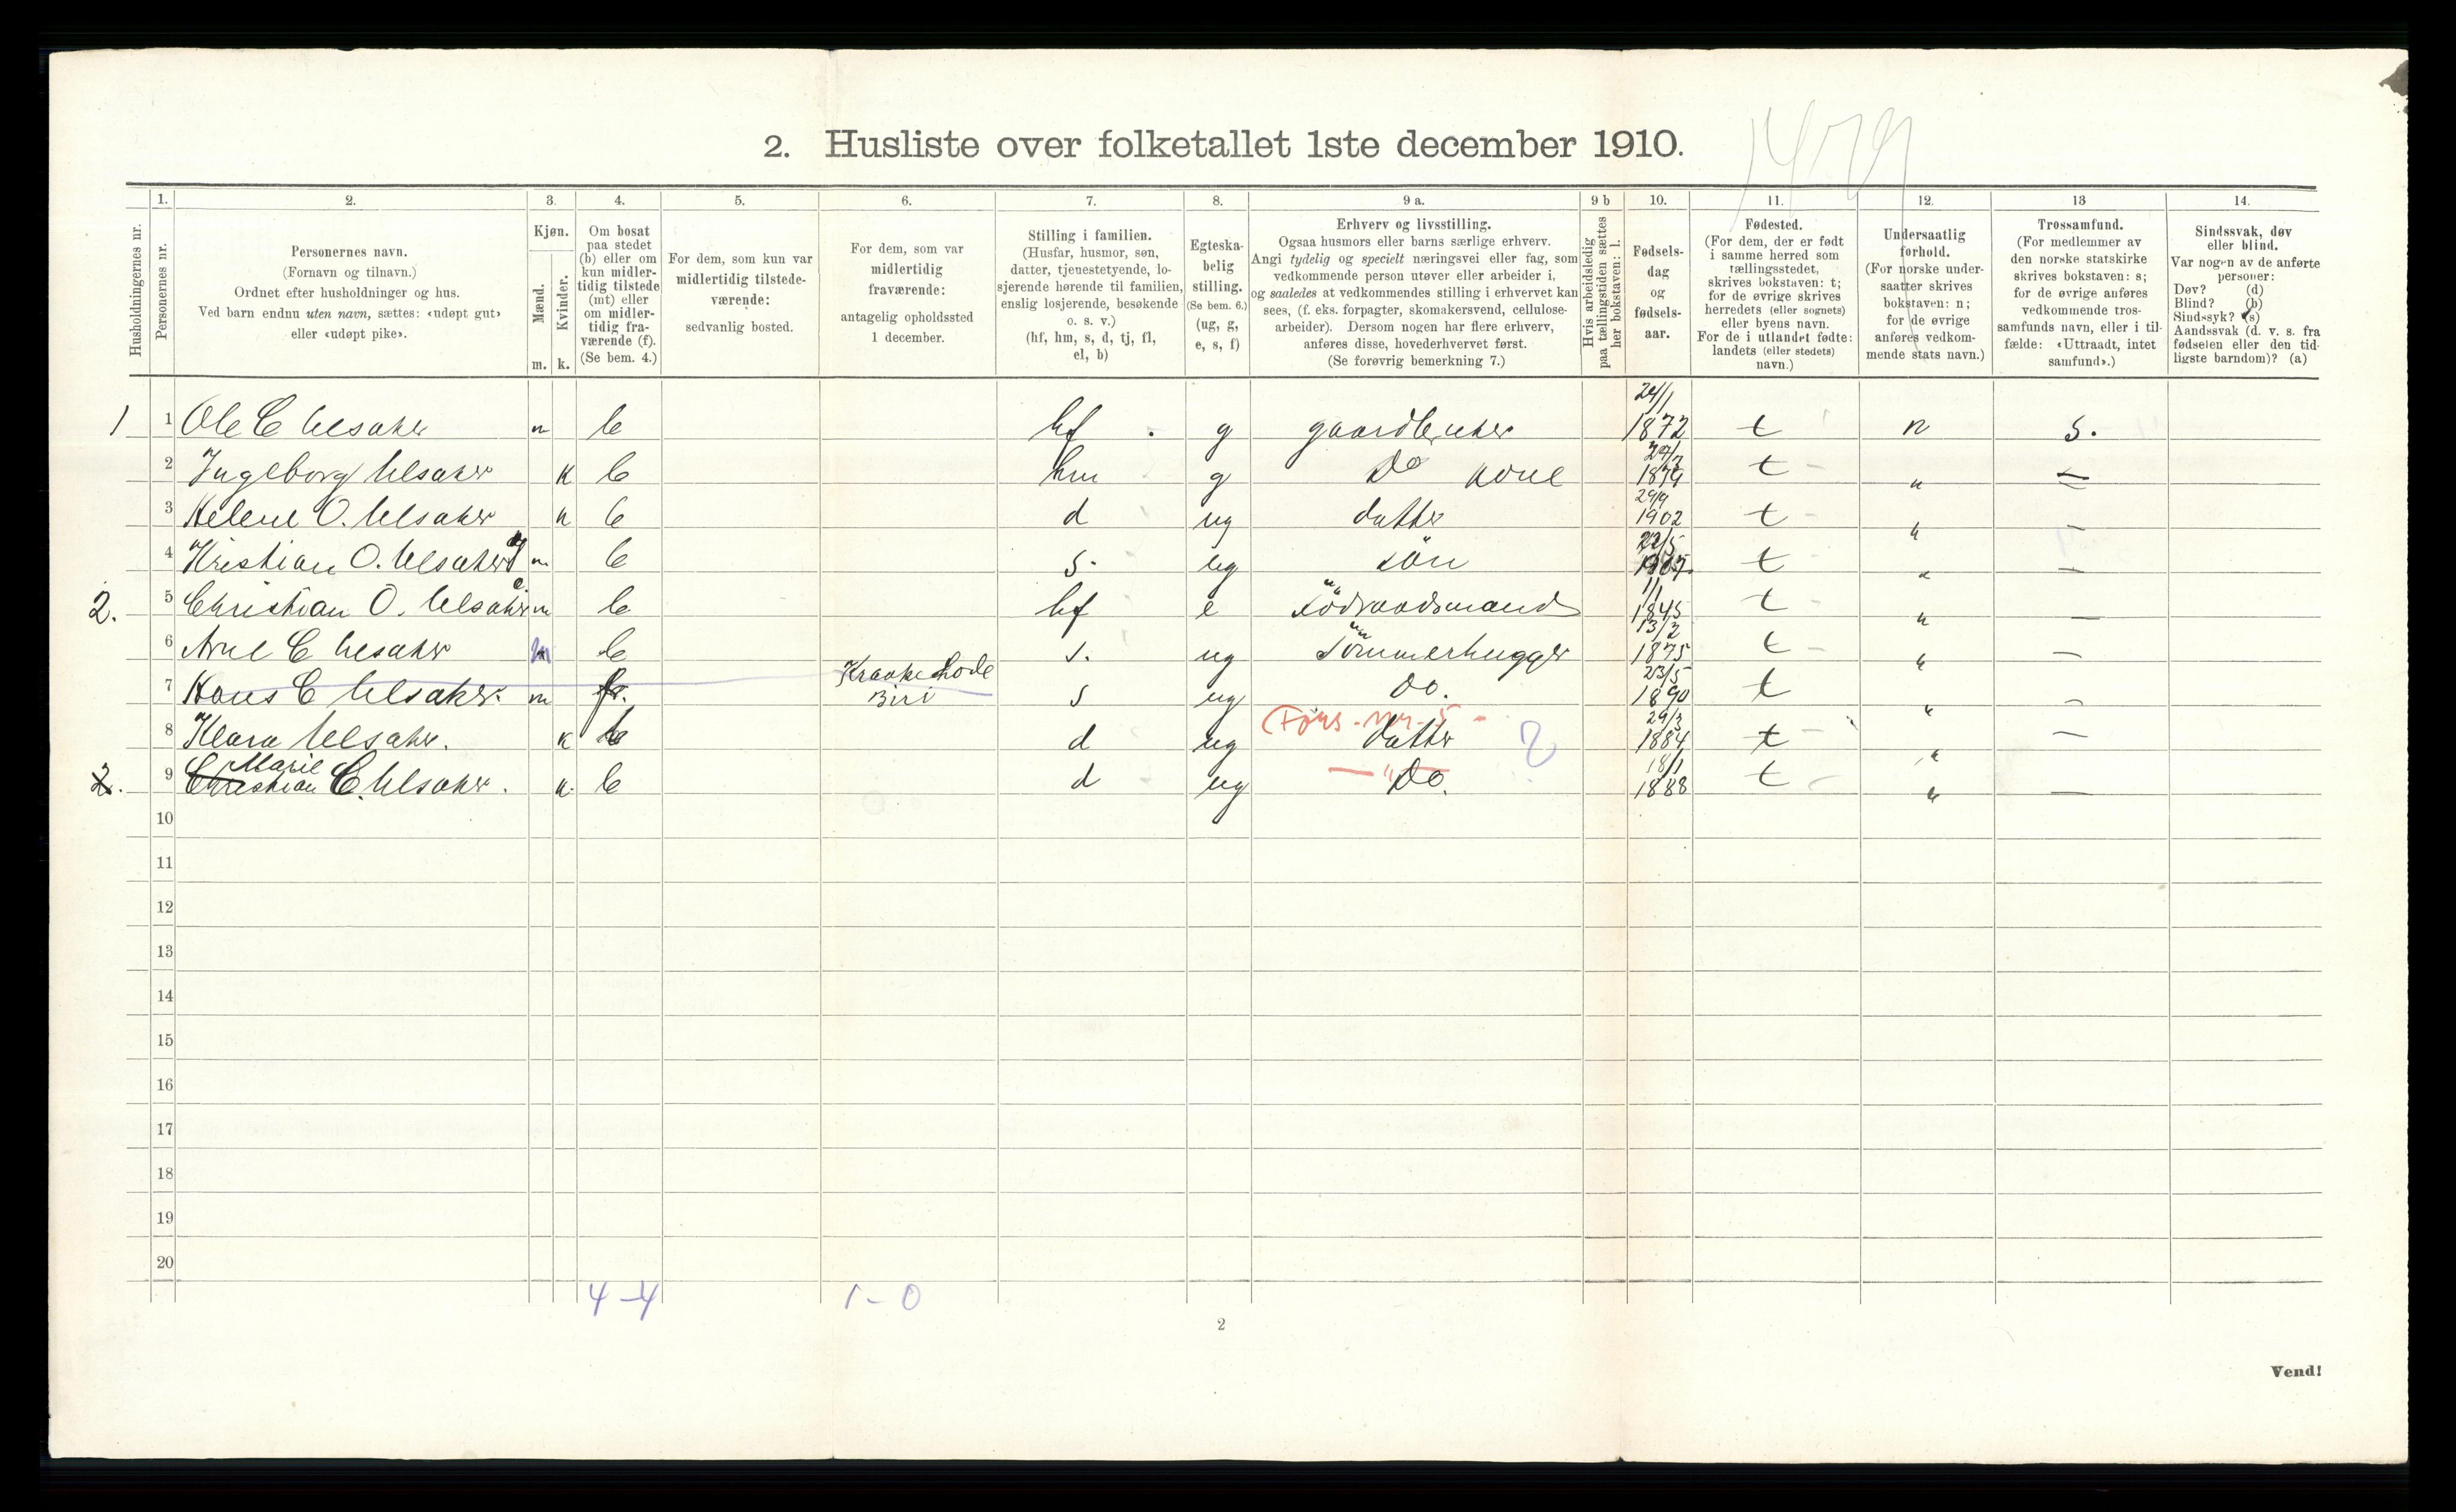 1479
2. Husliste over folketallet 1ste december 1910.
Husholdningernes nr.
1.
Personernes nr.
2.
Personernes navn.
(Fornavn og tilnavn.)
Ordnet efter husholdninger og hus.
Ved barn endnu uten navn, sættes: «udøpt gut»
eller «udøpt pike».
3.
Kjøn.
Mænd.
Kvinder.
m. k.
4.
Om bosat
paa stedet
(b) eller om
kun midler-
tidig tilstede
(mt) eller
om midler-
tidig fra-
værende (f).
(Se bem. 4.)
5.
For dem, som kun var
midlertidig tilstede-
værende:
sedvanlig bosted.
6.
For dem, som var
midlertidig
fraværende:
antagelig opholdssted
1 december.
7.
Stilling i familien.
(Husfar, husmor, søn,
datter, tjenestetyende, lo-
sjerende hørende til familien,
enslig losjerende, besøkende
o. s. v.)
(hf, hm, s, d, tj, fl,
el, b)
8.
Egteska-
belig
stilling.
(Se bem. 6.)
(ug, g,
e, s, f)
9 a.
Erhverv og livsstilling.
Ogsaa husmors eller barns særlige erhverv.
Angi tydelig og specielt næringsvei eller fag, som
vedkommende person utøver eller arbeider i,
og saaledes at vedkommendes stilling i erhvervet kan
sees, (f. eks. forpagter, skomakersvend, cellulose-
arbeider). Dersom nogen har flere erhverv,
anføres disse, hovederhvervet først.
(Se forøvrig bemerkning 7.)
9 b
Hvis arbeidsledig
paa tællingstiden sættes
her bokstaven: l.
10.
Fødsels-
dag
og
fødsels-
aar.
11.
Fødested.
(For dem, der er født
i samme herred som
tællingsstedet,
skrives bokstaven: t;
for de øvrige skrives
herredets (eller sognets)
eller byens navn.
For de i utlandet fødte:
landets (eller stedets)
navn.)
12.
Undersaatlig
forhold.
(For norske under-
saatter skrives
bokstaven: n;
for de øvrige
anføres vedkom-
mende stats navn.)
13
Trossamfund.
(For medlemmer av
den norske statskirke
skrives bokstaven: s;
for de øvrige anføres
vedkommende tros-
samfunds navn, eller i til-
fælde: «Uttraadt, intet
samfund».)
14.
Sindssvak, døv
eller blind.
Var nogen av de anførte
personer:
Døv? (d)
Blind? (b)
Sindssyk? (s)
Aandssvak (d. v. s. fra
fødselen eller den tid-
ligste barndom)? (a)
1 1 Ole C Ulsaker m b hf . g gaardbruker 24/1 1872 t n s.
2 Ingeborg Ulsaker k b hm g Do kone 1879 t " —
3 Helene O. Ulsaker k b d ug datter 29/9 1902 t " —
4 Kristian O. Ulsaker m b s. ug søn 22/5 1907. t " —
2. 5 Christian O. Ulsaker m b hf e Födraadsmand 1/1 1845 t " —
6 Arne C Ulsaker m b s. ug Tömmerhugger 13/2 1875 t " —
7 Hans C Ulsaker. m f. Kraakehode Biri s ug Do. 23/5 1890 t " —
8 Klara Ulsaker. k b d ug (Fors. nr. 5 - datter 29/3 1884 t " —
2. 9 Christian Marie C. Ulsaker. k. b d ug — " — Do. 18/1 1888 t " —
10
11
12
13
14
15
16
17
18
19
20
4 - 4 1 - 0
2
Vend!